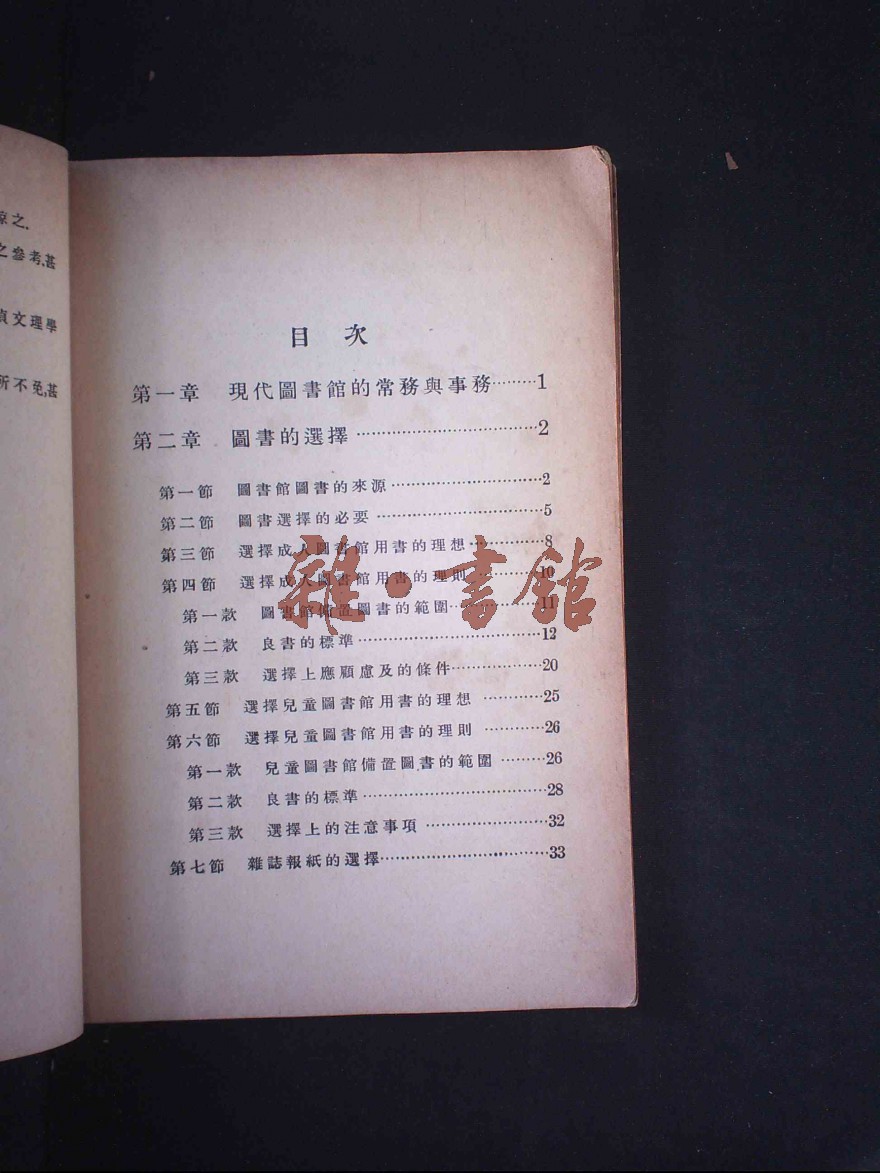 諒之.
之參考,甚
貞文理學
所不免,甚
目次
第一章 現代圖書館的常務與事務………1
第二章 圖書的選擇………………………………2
第一節 圖書館圖書的來源…………………………2
第二節 圖書選擇的必要……………………………5
第三節 選擇成人圖書館用書的理想……………8
第四節 選擇成人圖書館用書的理則……………10
第一款 圖書館備置圖書的範圍………………11
第二款 良書的標準………………………………12
第三款 選擇上應顧慮及的條件………………20
第五節 選擇兒童圖書館用書的理想…………25
第六節 選擇兒童圖書館用書的理則…………26
第一款 兒童圖書館備置圖書的範圍………26
第二款 良書的標準………………………………28
第三款 選擇上的注意事項……………………32
第七節 雜誌報紙的選擇……………………………33
雜·書館